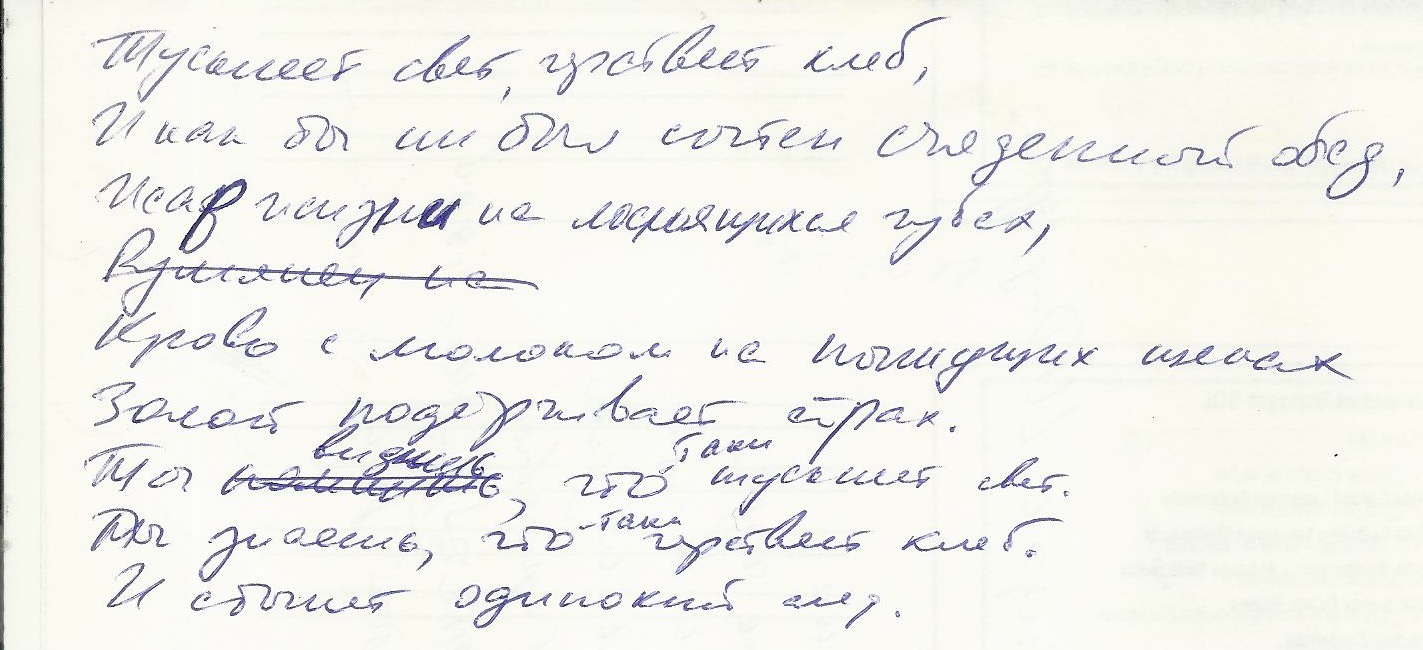 Тускнеет свет, черствеет хлеб,
И как бы ни был сытен съеденный обед,
Жизни на лоснящихся губах,
Румянец на
Кровь с молоком на щеках
Золой подёргивает страх.
Ты видишь, что-таки тускнеет свет.
Ты знаешь, что-таки черствеет хлеб.
И стынет одинокий след.